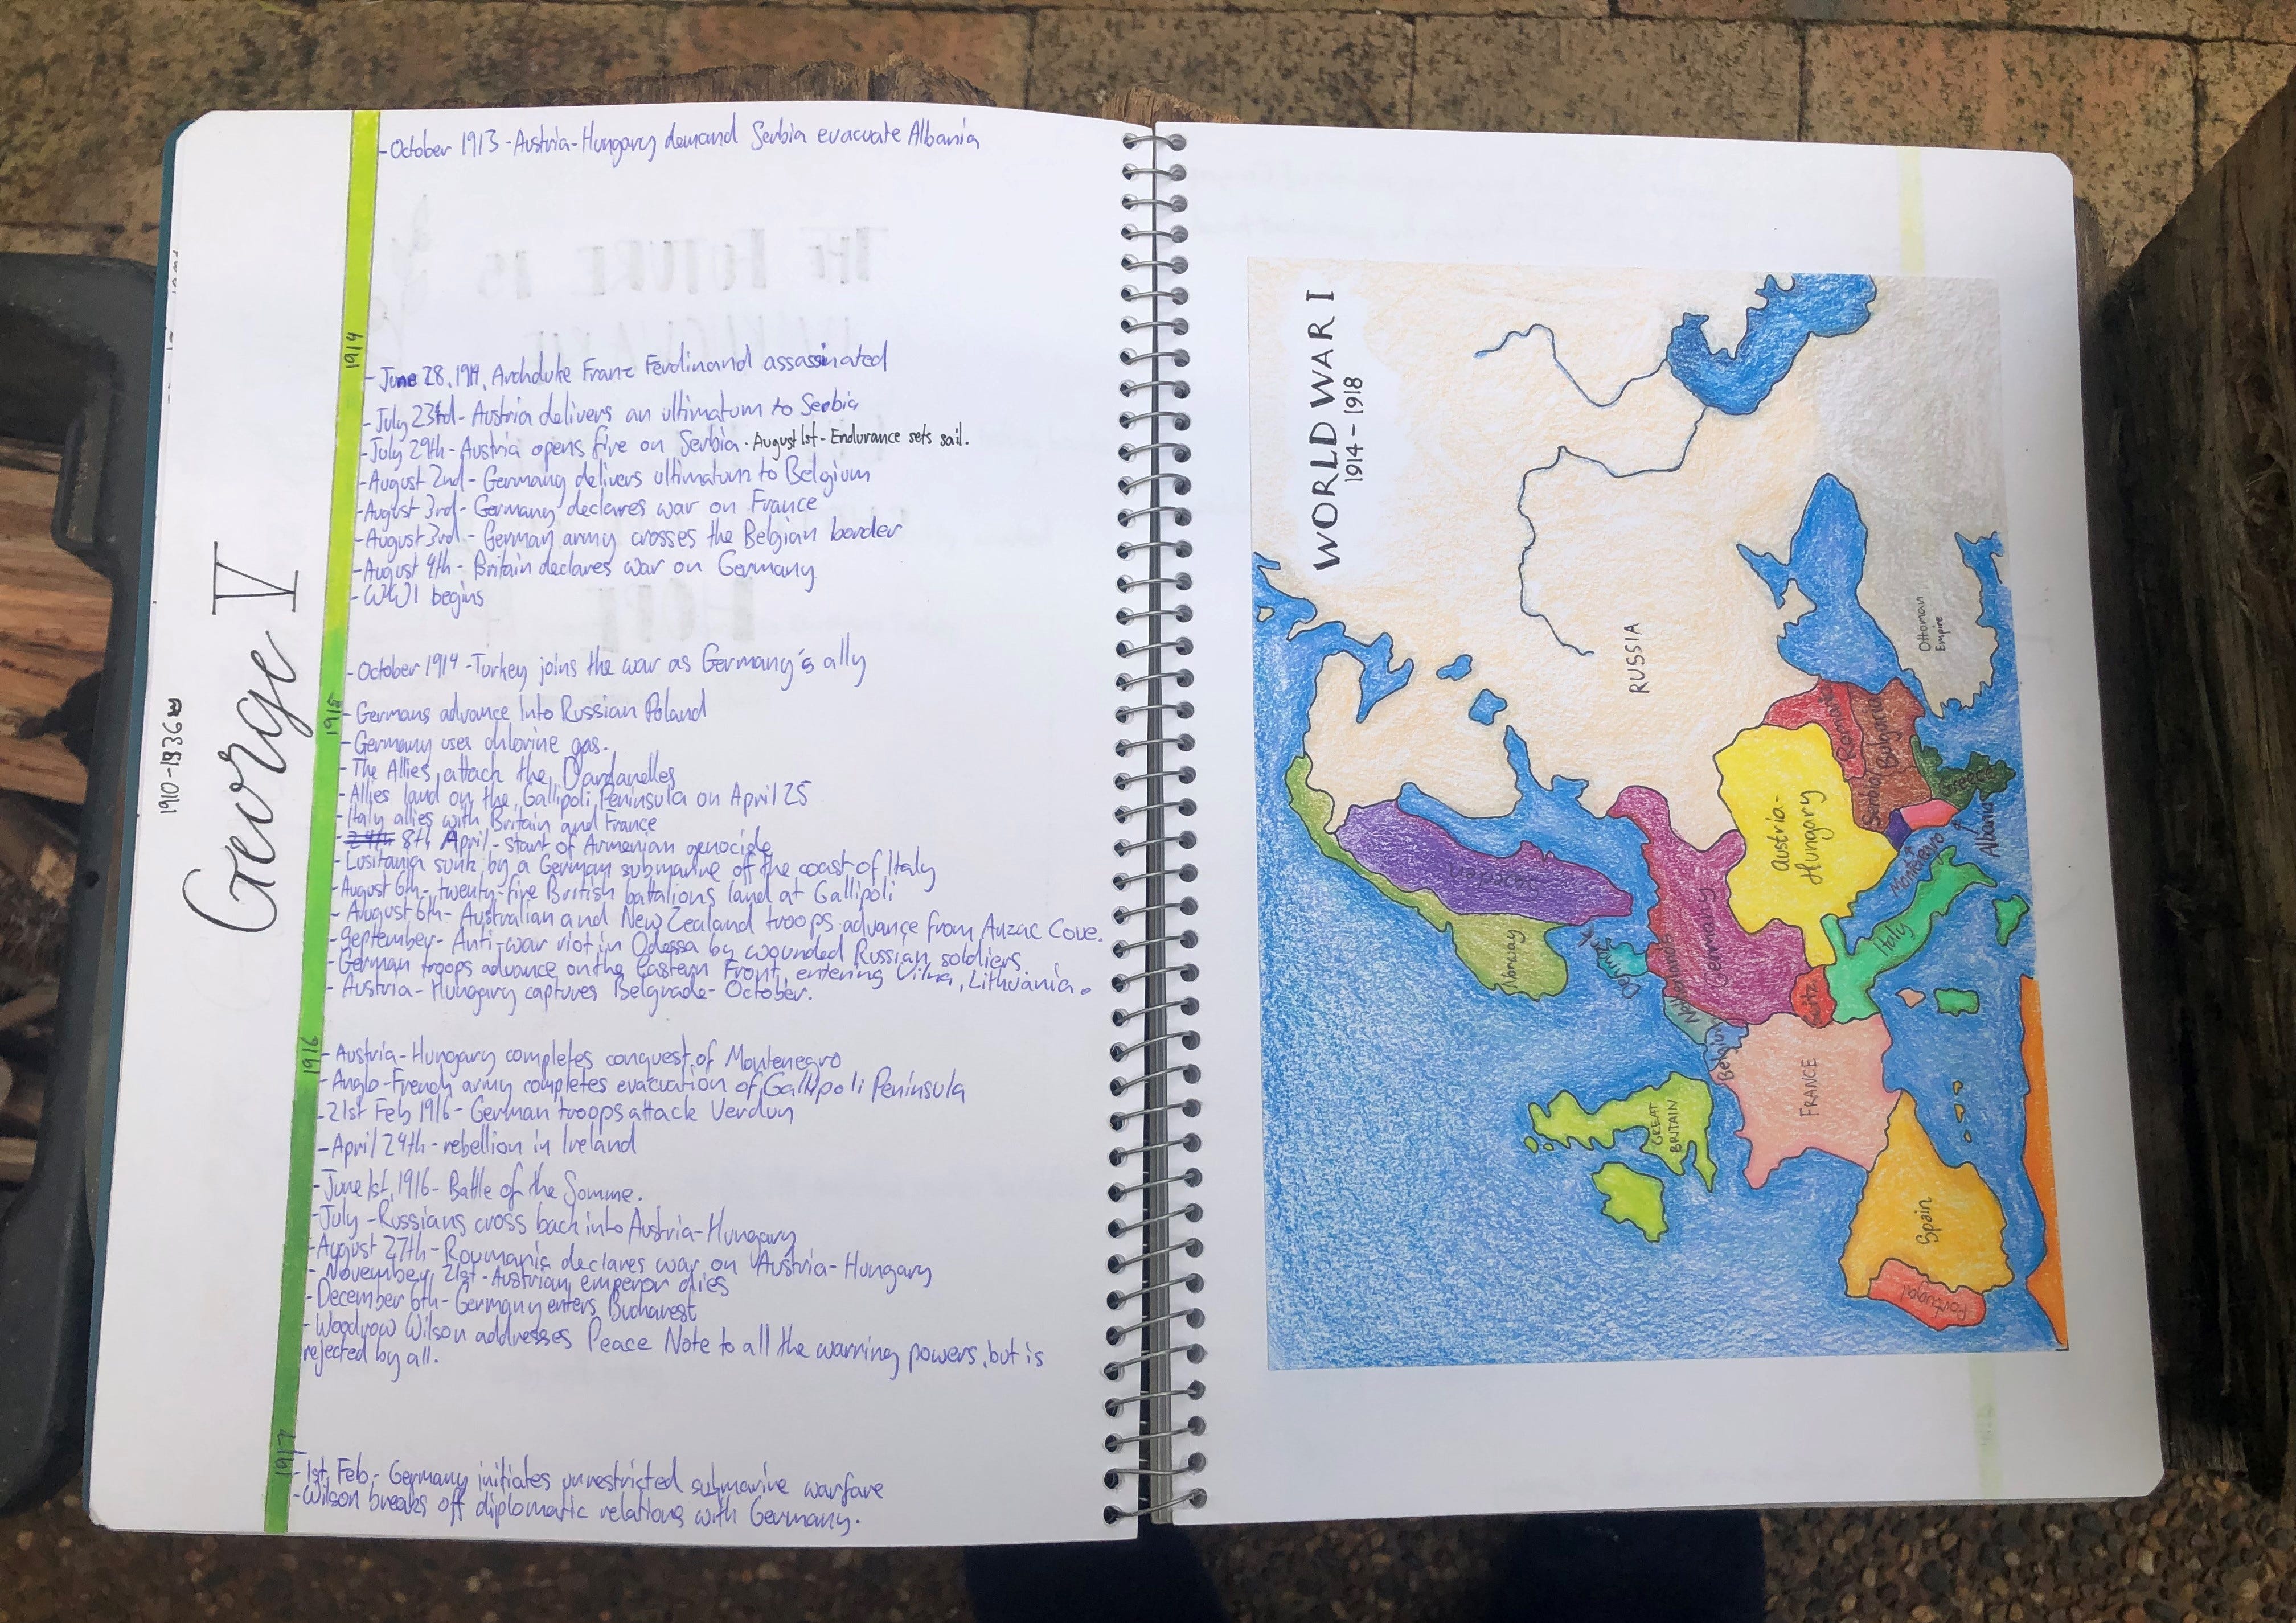 - October 1913 - Austria-Hungary demand Serbia evacuate Albania
1914
- June 28, 1914, Archduke Franz Ferdinand assassinated
- July 23rd - Austria delivers an ultimatum to Serbia
- July 29th - Austria opens fire on Serbia. August 1st - Endurance sets sail.
- August 2nd - Germany delivers ultimatum to Belgium
- August 3rd - Germany declares war on France
- August 3rd - German army crosses the Belgian border
- August 4th - Britain declares war on Germany
- WW1 begins
- October 1914 - Turkey joins the war as Germany's ally
1915
- Germans advance Into Russian Poland
- Germany uses chlorine gas.
- The Allies attack the Dardanelles
- Allies land on the Gallipoli Peninsula on April 25
- Italy allies with Britain and France
- 24th 8th April - start of Armenian genocide
- Lusitania sunk by a German submarine off the coast of Italy
- August 6th - twenty-five British battalions land at Gallipoli
- August 6th - Australian and New Zealand troops advance from Anzac Cove.
- September - Anti-war riot in Odessa by wounded Russian soldiers
- German troops advance on the Eastern Front, entering Vilna, Lithuania.
- Austria-Hungary captures Belgrade - October.
1916
- Austria-Hungary completes conquest of Montenegro
- Anglo-French army completes evacuation of Gallipoli Peninsula
- 21st Feb 1916 - German troops attack Verdun
- April 24th - rebellion in Ireland
- June 1st, 1916 - Battle of the Somme.
- July - Russians cross back into Austria-Hungary
- August 27th - Roumania declares war on Austria-Hungary
- November 21st - Austrian emperor dies
- December 6th - Germany enters Bucharest
- Woodrow Wilson addresses Peace Note to all the warring powers, but is
rejected by all.
1917
- 1st Feb - Germany initiates unrestricted submarine warfare
- Wilson breaks off diplomatic relations with Germany.
George V
1910-1936
WORLD WAR I
1914-1918
RUSSIA
Ottoman
Empire
Roumania
Bulgaria
Serbia
Greece
Albania
Montenegro
Austria-
Hungary
Italy
Sweden
Norway
Denmark
Germany
Netherlands
Belgium
Switz
FRANCE
GREAT
BRITAIN
Spain
Portugal
THE FUTURE IS
HOPE